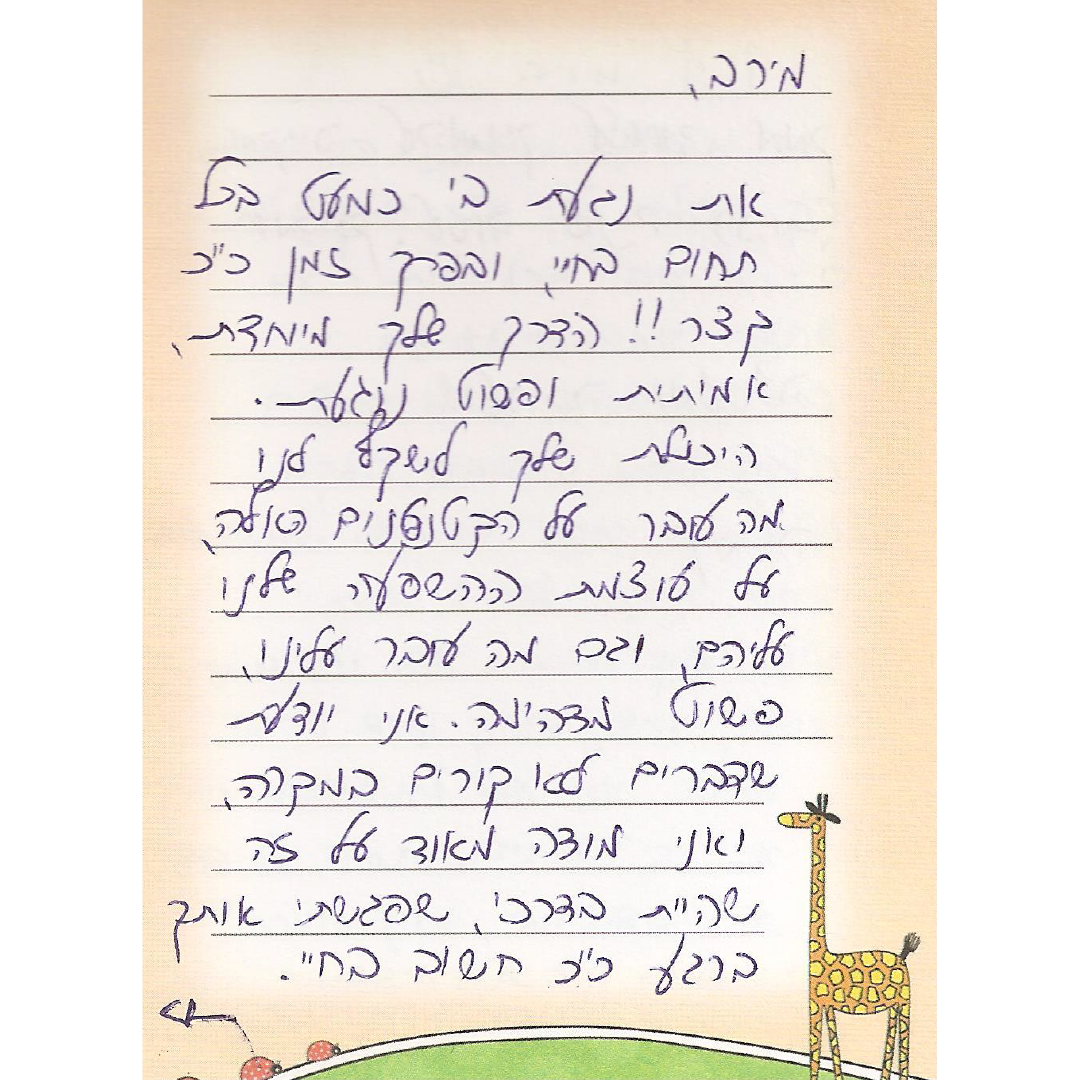 מירב,
את נגעת בי כמעט בכל
תחום בחיי, ובפרק זמן כ"כ
קצר!! הדרך שלך מיוחדת,
אמיתית ופשוט נוגעת.
היכולת שלך לשקף לנו
מה עובר על הקטנטנים האלה,
על עוצמת ההשפעה שלנו
עליהם, וגם מה עובר עלינו,
פשוט מדהימה. אני יודעת
שדברים לא קורים במקרה,
ואני מודה מאוד על זה
שהיית בדרכי, שפגשתי אותך
ברגע כ"כ חשוב בחיי.